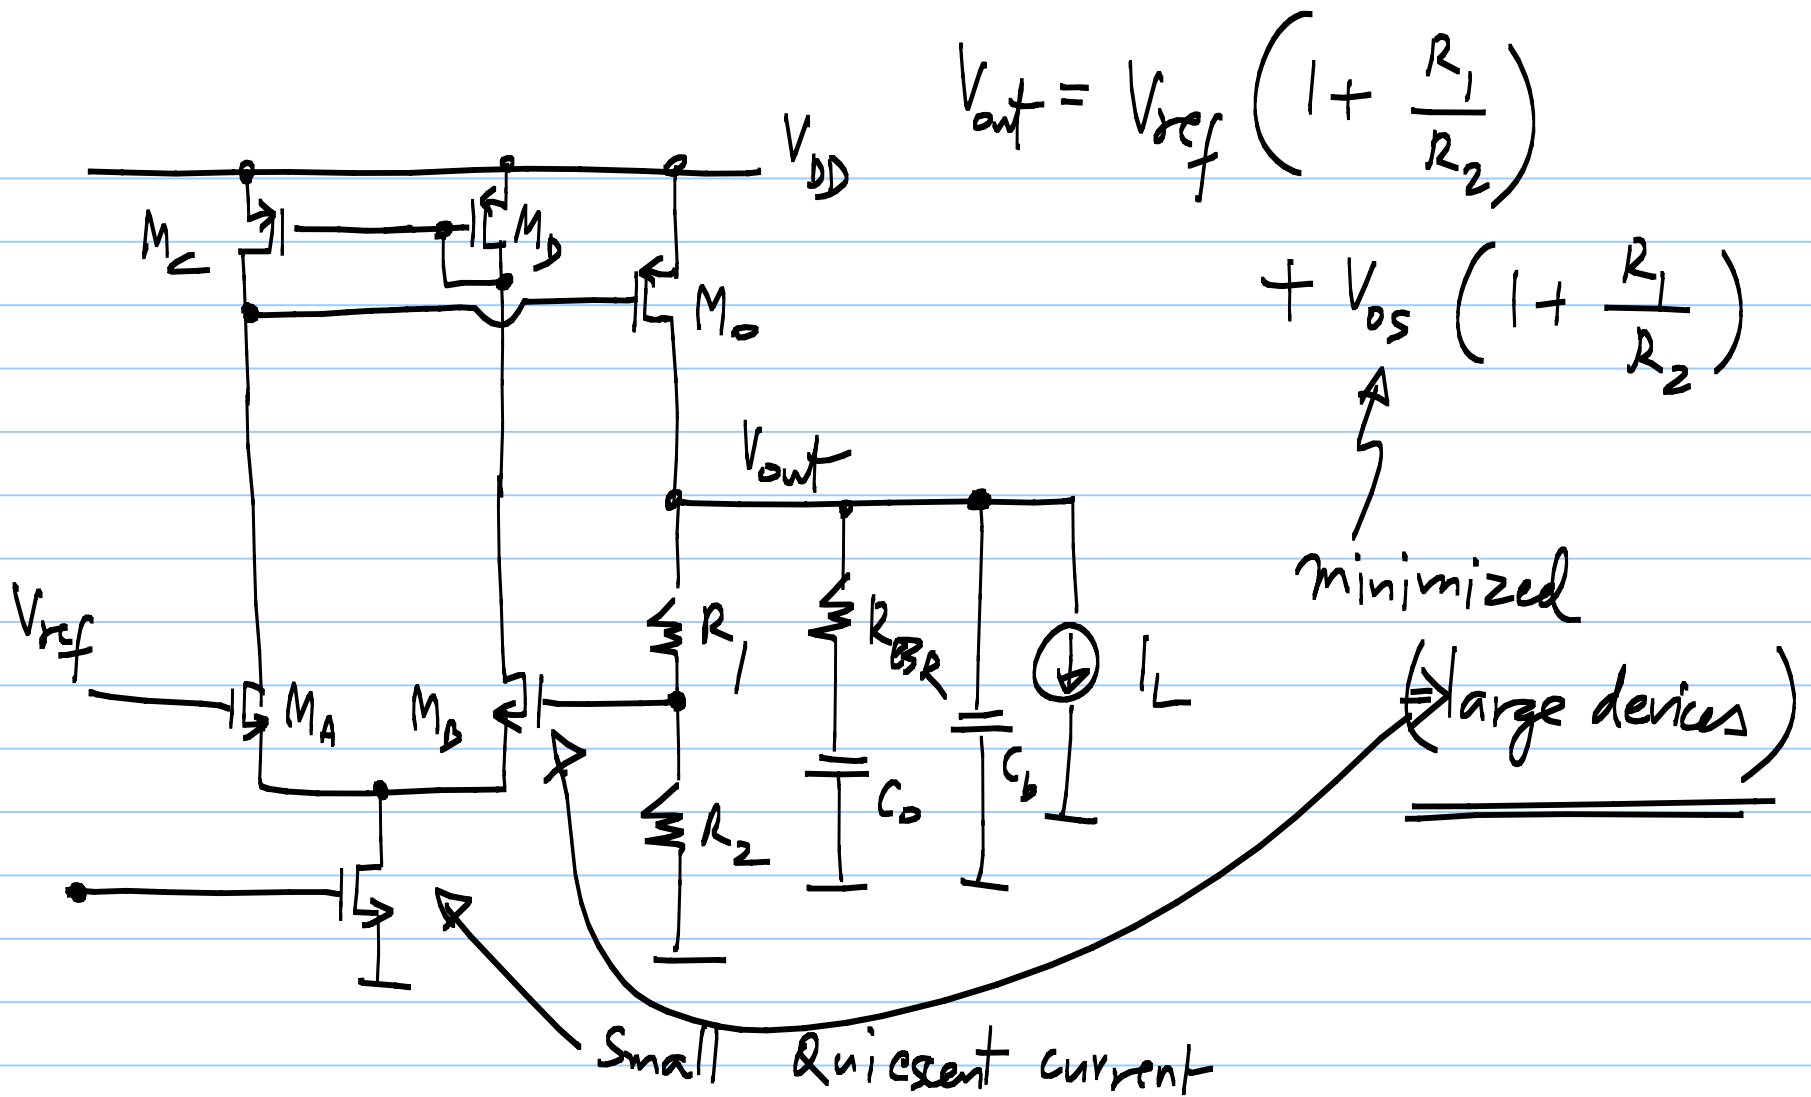 Vout = Vref (1 + R1/R2)
+ Vos (1 + R1/R2)
minimized
(⇒ large devices)
VDD
MC
MD
Mo
Vout
Vref
MA
MB
R1
R2
Co
Cb
IL
Small Quiescent current